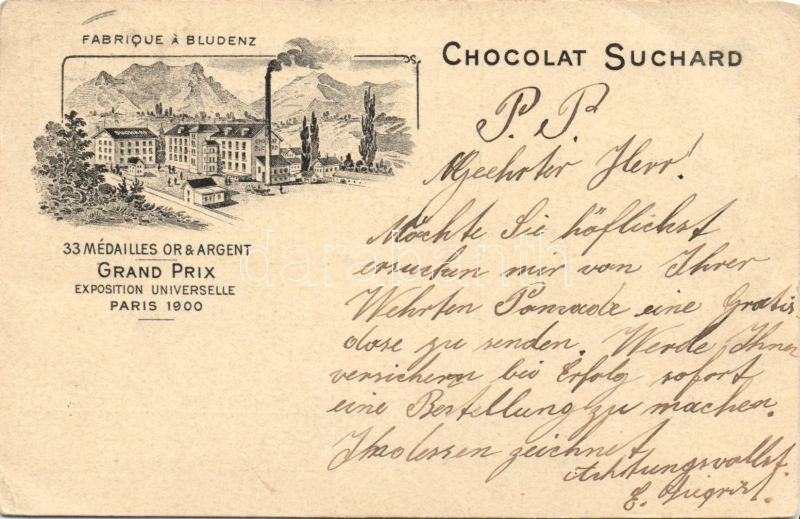 FABRIQUE À BLUDENZ
SUCHARD
CHOCOLAT SUCHARD
33 MÉDAILLES OR & ARGENT
GRAND PRIX
EXPOSITION UNIVERSELLE
PARIS 1900
P. P.
Geehrter Herr!
Möchte Sie höflichst
ersuchen mir von Ihrer
Wehrten Pomade eine Gratis
dose zu senden. Werde Ihnen
versichern bei Erfolg sofort
eine Bestellung zu machen.
zeichnet
Achtungsvollst.
E.
darabanth